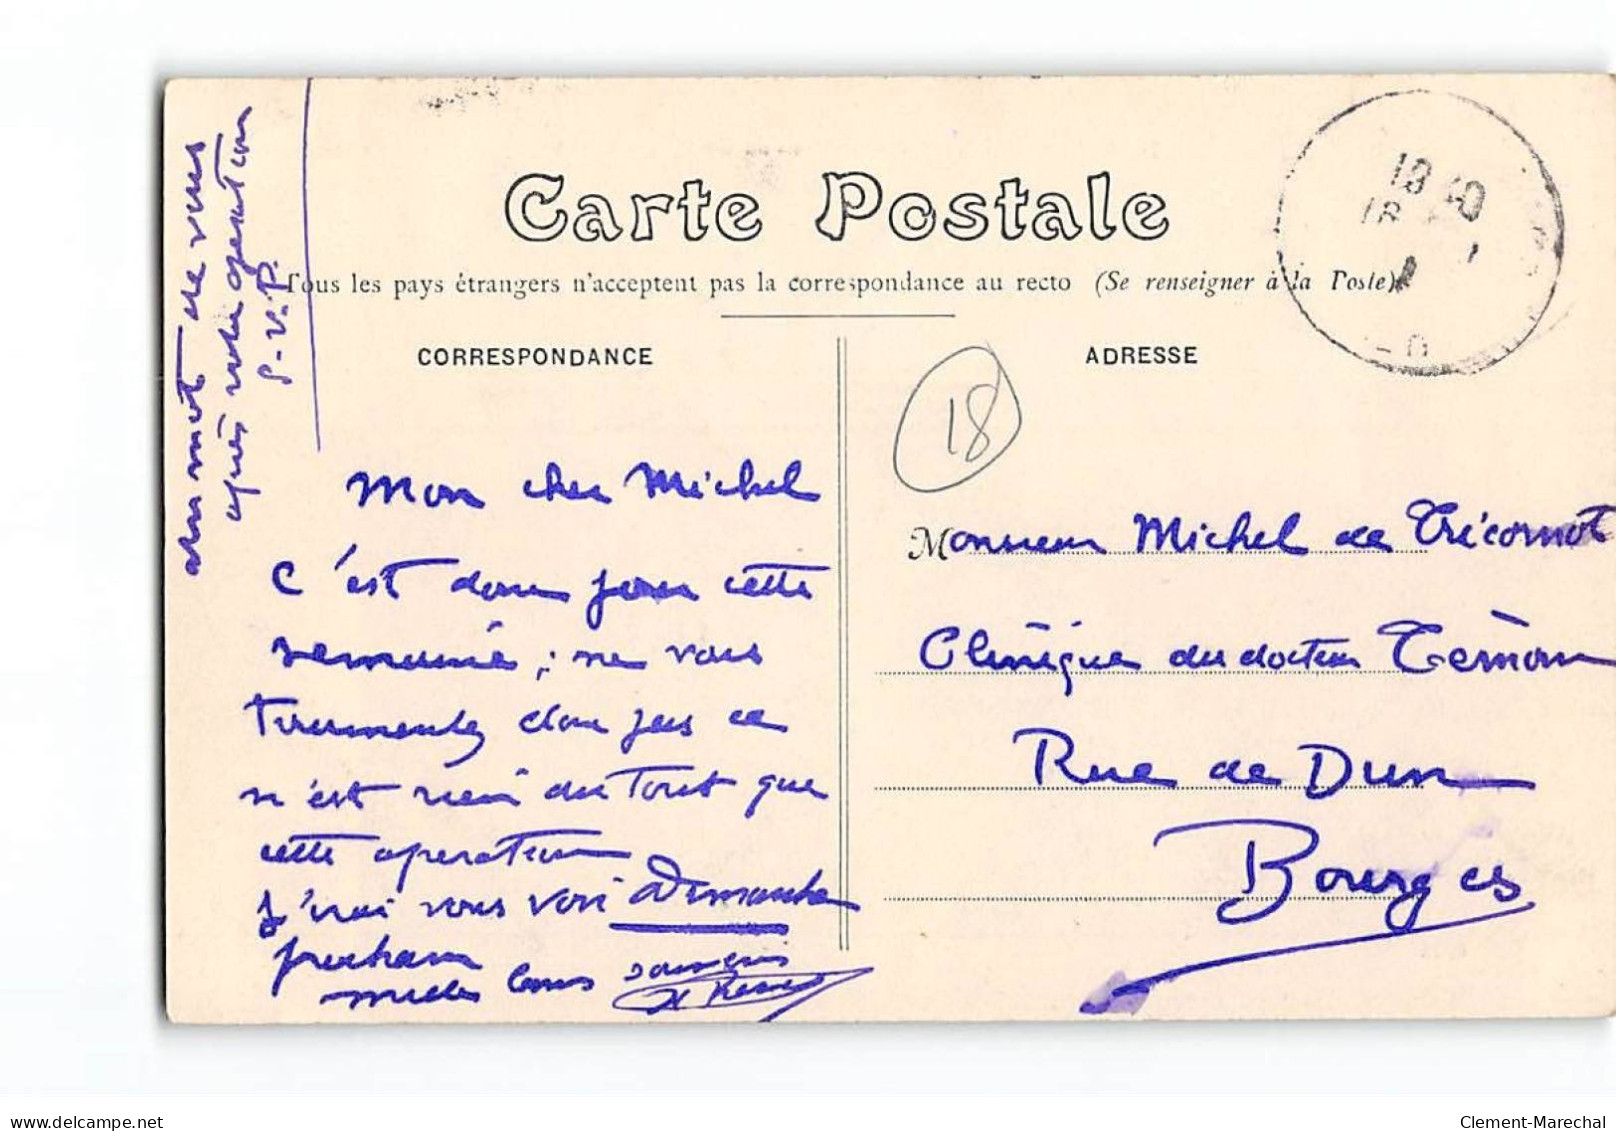 un mot de vous
après votre opération
S.V.P.
Carte Postale
Tous les pays étrangers n'acceptent pas la correspondance au recto (Se renseigner à la Poste)
CORRESPONDANCE
ADRESSE
18
Mon cher Michel
C'est donc pour cette
semaine ; ne vous
tourmentez donc pas ce
n'est rien du tout que
cette operation
J'irai vous voir dimanche
prochain
milles bons souvenirs
Monsieur Michel de Tricornot
Clinique du docteur Témoin
Rue de Dun
Bourges
www.delcampe.net
Clement-Marechal